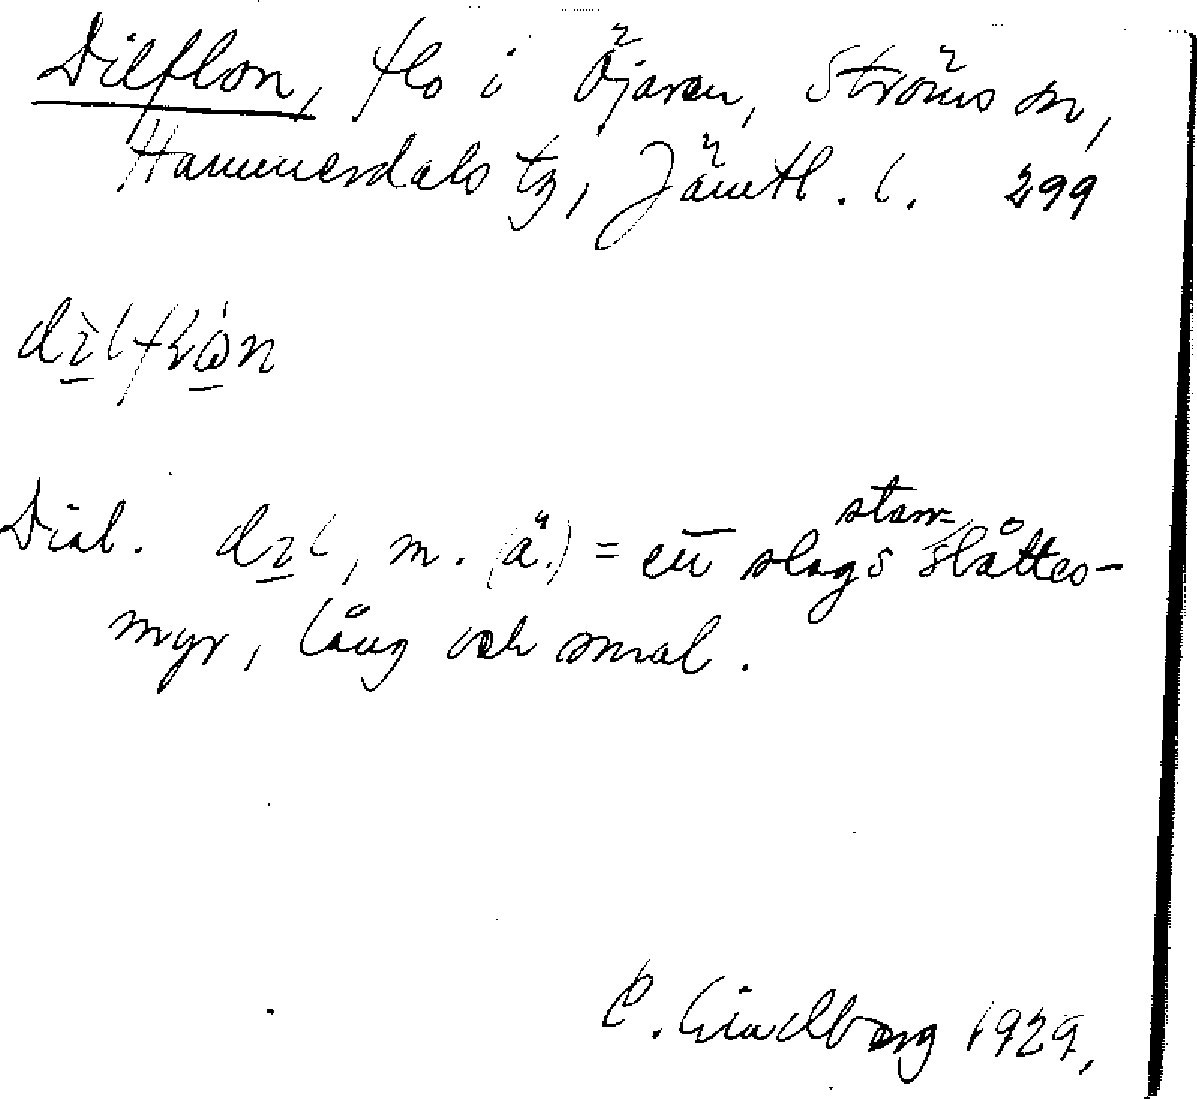 Dilflon, flo i Öjaren, Ströms sn,
Hammerdals tg, Jämtl. l. 299
Dial. dıl, m. (ä.) = ett slags starr-slåttes-
myr, lång och smal.
C. Lindberg 1929.